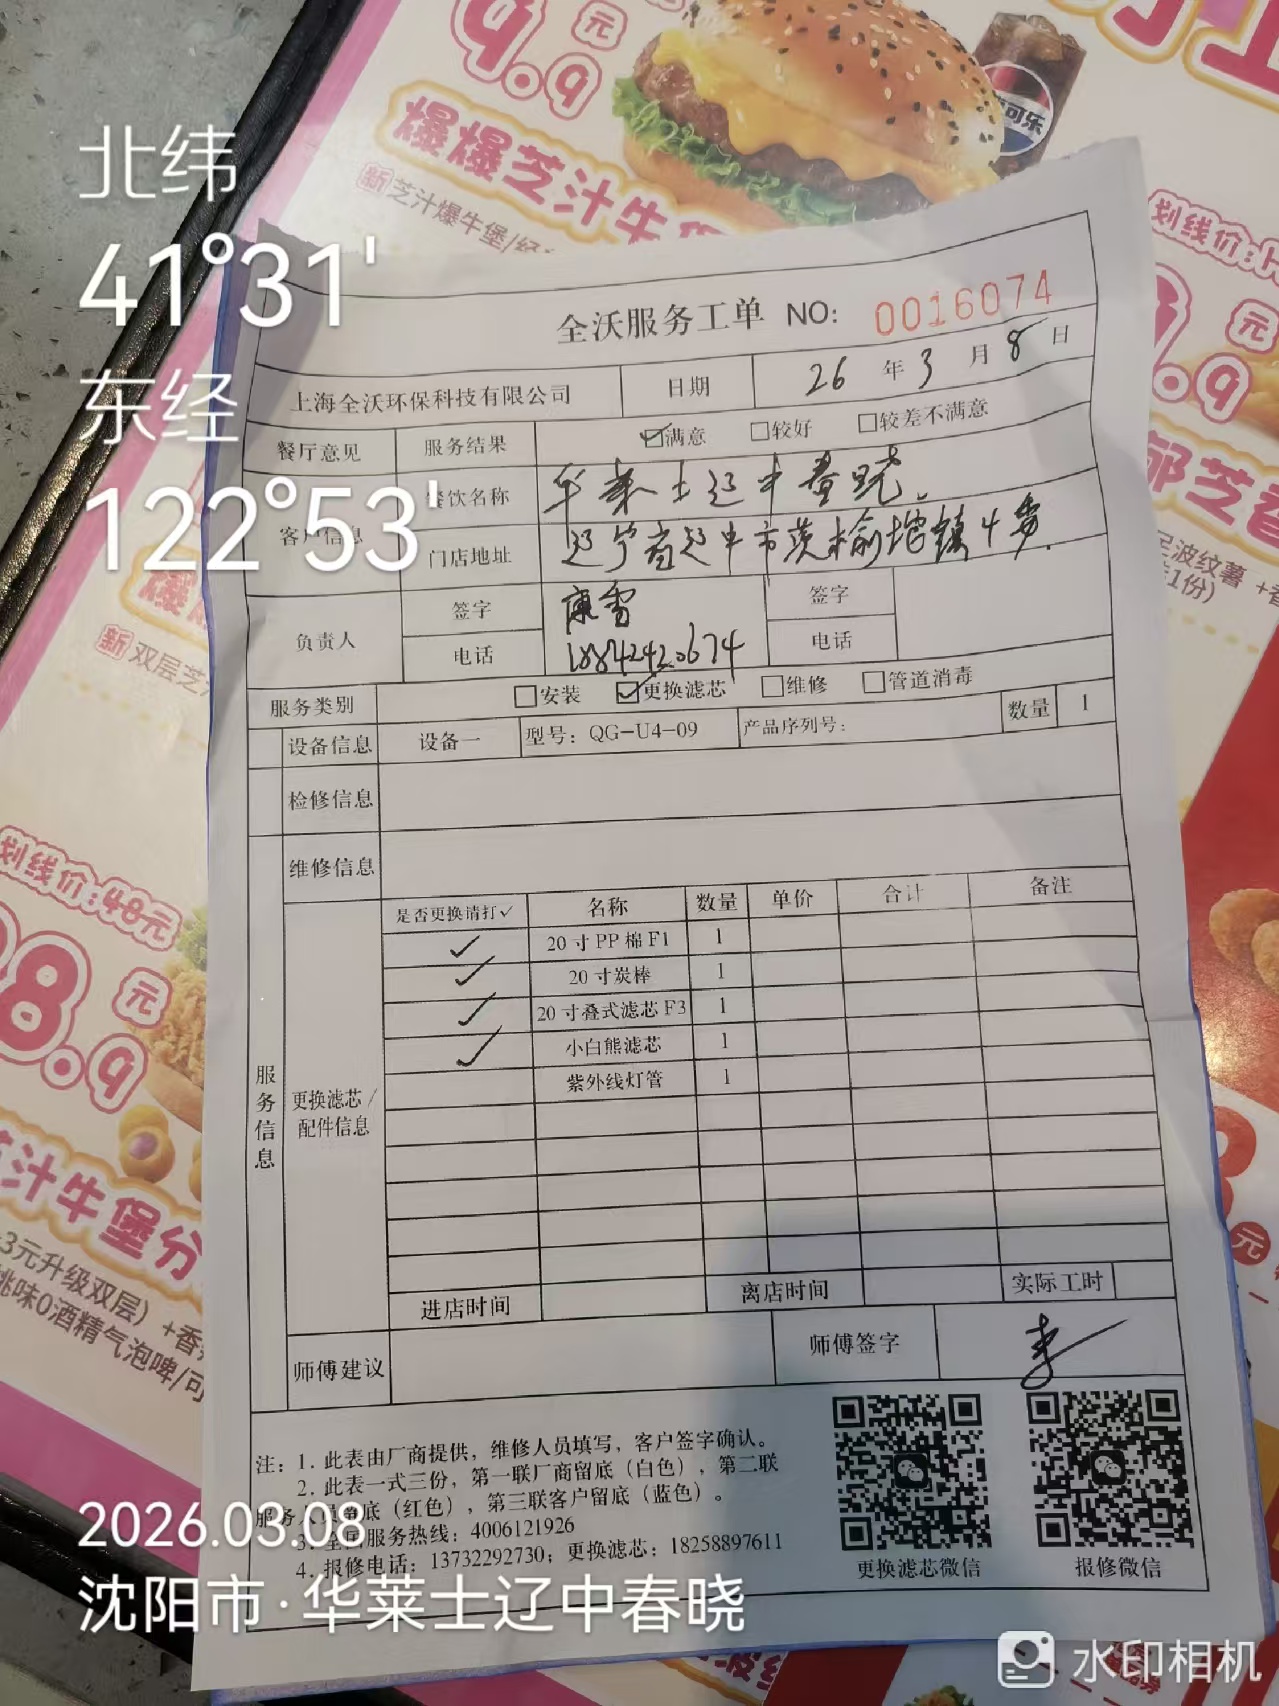 9.9元
爆爆芝汁牛
新 芝汁爆牛堡/经
可乐
划线价:
元
.9
北纬
41°31'
东经
122°53'
全沃服务工单 NO: 0016074
上海全沃环保科技有限公司 日期 26 年 3 月 8 日
餐厅意见 服务结果 ☑满意 □较好 □较差不满意
客户信息 餐饮名称 华莱士辽中春晓.
门店地址 辽宁省辽中市茨榆坨镇
负责人 签字 康雪 签字
电话 电话
服务类别 □安装 ☑更换滤芯 □维修 □管道消毒
设备信息 设备一 型号: QG-U4-09 产品序列号: 数量 1
检修信息
维修信息
服务信息
更换滤芯/
配件信息
是否更换请打✓ 名称 数量 单价 合计 备注
✓ 20寸PP棉F1 1
✓ 20寸炭棒 1
✓ 20寸叠式滤芯F3 1
✓ 小白熊滤芯 1
紫外线灯管 1
进店时间 离店时间 实际工时
师傅建议 师傅签字 李
注: 1. 此表由厂商提供, 维修人员填写, 客户签字确认。
2. 此表一式三份, 第一联厂商留底(白色), 第二联
服务人员留底(红色), 第三联客户留底(蓝色)。
3. 全国服务热线: 4006121926
4. 报修电话: 13732292730; 更换滤芯: 18258897611
更换滤芯微信 报修微信
新 双层芝
足波纹薯
1份)
划线价:48元
8.9元
芝汁牛堡分
3元升级双层) +香
桃味0酒精气泡啤/可
元
2026.03.08
沈阳市·华莱士辽中春晓
水印相机